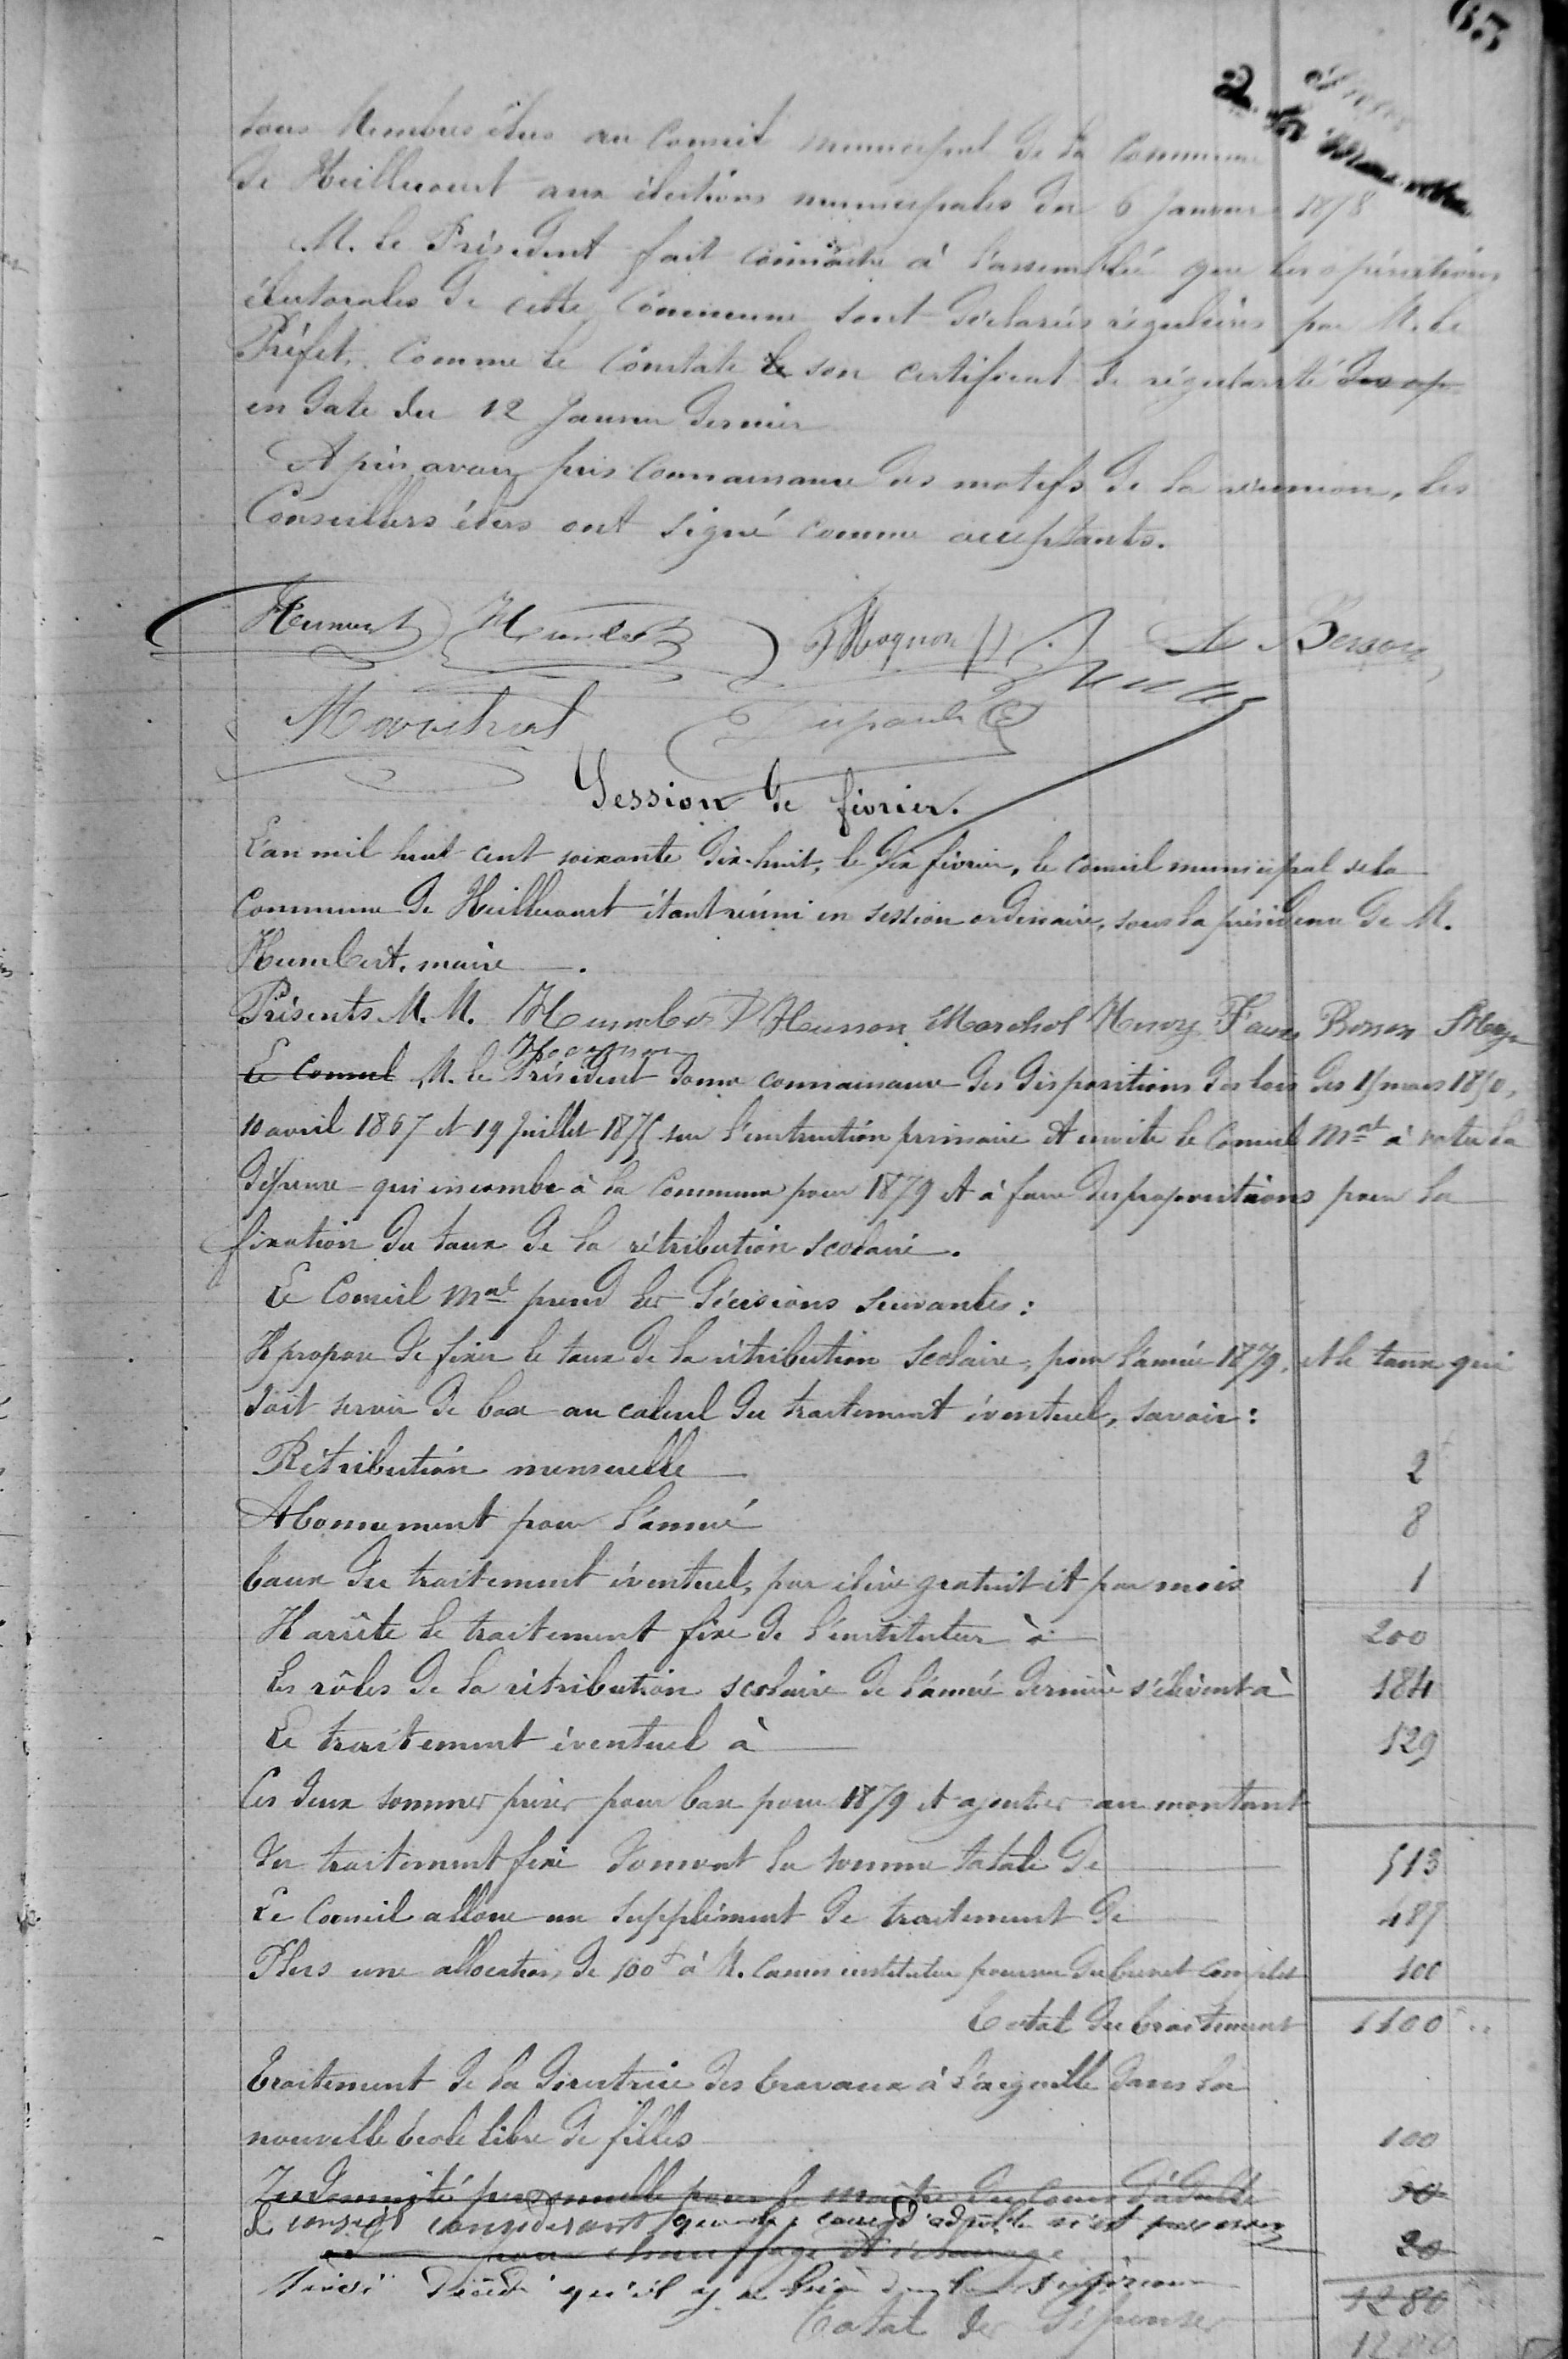 65
tous Membres élus au Conseil municipal de la Commune
de Heillecourt aux élections municipales du 6 Janvier 1878
M. le Président fait connaître à l'assemblée que les opérations
électorales de cette Commune sont déclarées régulières par M. le
Préfet, comme le constate le son certificat de régularité des op
en date du 12 Janvier dernier
Après avoir pris connaissance des motifs de la réunion, les
Conseillers élus ont signé comme acceptants.
Humbert Mognon A Besson
Marchal
Session de février.
L'an mil huit cent soixante dix-huit, le dix février, le Conseil municipal de la
Commune de Heillecourt étant réuni en session ordinaire, sous la présidence de M.
Humbert, maire.
Présents M.M. Humbert Husson Marchal Henry Favre Besson
Mognon
Le Conseil M. le Président donne connaissance des dispositions des lois des 15 mars 1850,
10 avril 1867 et 19 Juillet 1875 sur l'instruction primaire et invite le Conseil Mal à voter la
dépense qui incombe à la Commune pour 1879 et à faire des propositions pour la
fixation du taux de la rétribution scolaire.
Le Conseil Mal prend les décisions suivantes :
Il propose de fixer le taux de la rétribution scolaire, pour l'année 1879, et le taux qui
doit servir de base au calcul du traitement éventuel, savoir :
Rétribution mensuelle 2f
Abonnement pour l'année 8
Taux du traitement éventuel, par élève gratuit et par mois 1
Il arrête le traitement fixe de l'instituteur à 200
Les rôles de la rétribution scolaire de l'année dernière s'élèvent à 184
Le traitement éventuel à 129
Ces deux sommes prises pour base pour 1879 et ajoutées au montant
du traitement fixe donnent la somme totale de 513
Le Conseil alloue un supplément de traitement de 487
Plus une allocation de 100f à M. instituteur pourvu du brevet complet 100
Total du traitement 1100 "
Traitement de la directrice des travaux à l'aiguille dans la
nouvelle école libre de filles 100
Indemnité personnelle pour le maître du Cours d'adulte
Le conseil considérant que le cours d'adulte n'est pas
pour chauffage et éclairage 20
décide qu'il y a lieu de le supprimer 1280
Total des dépenses 1200